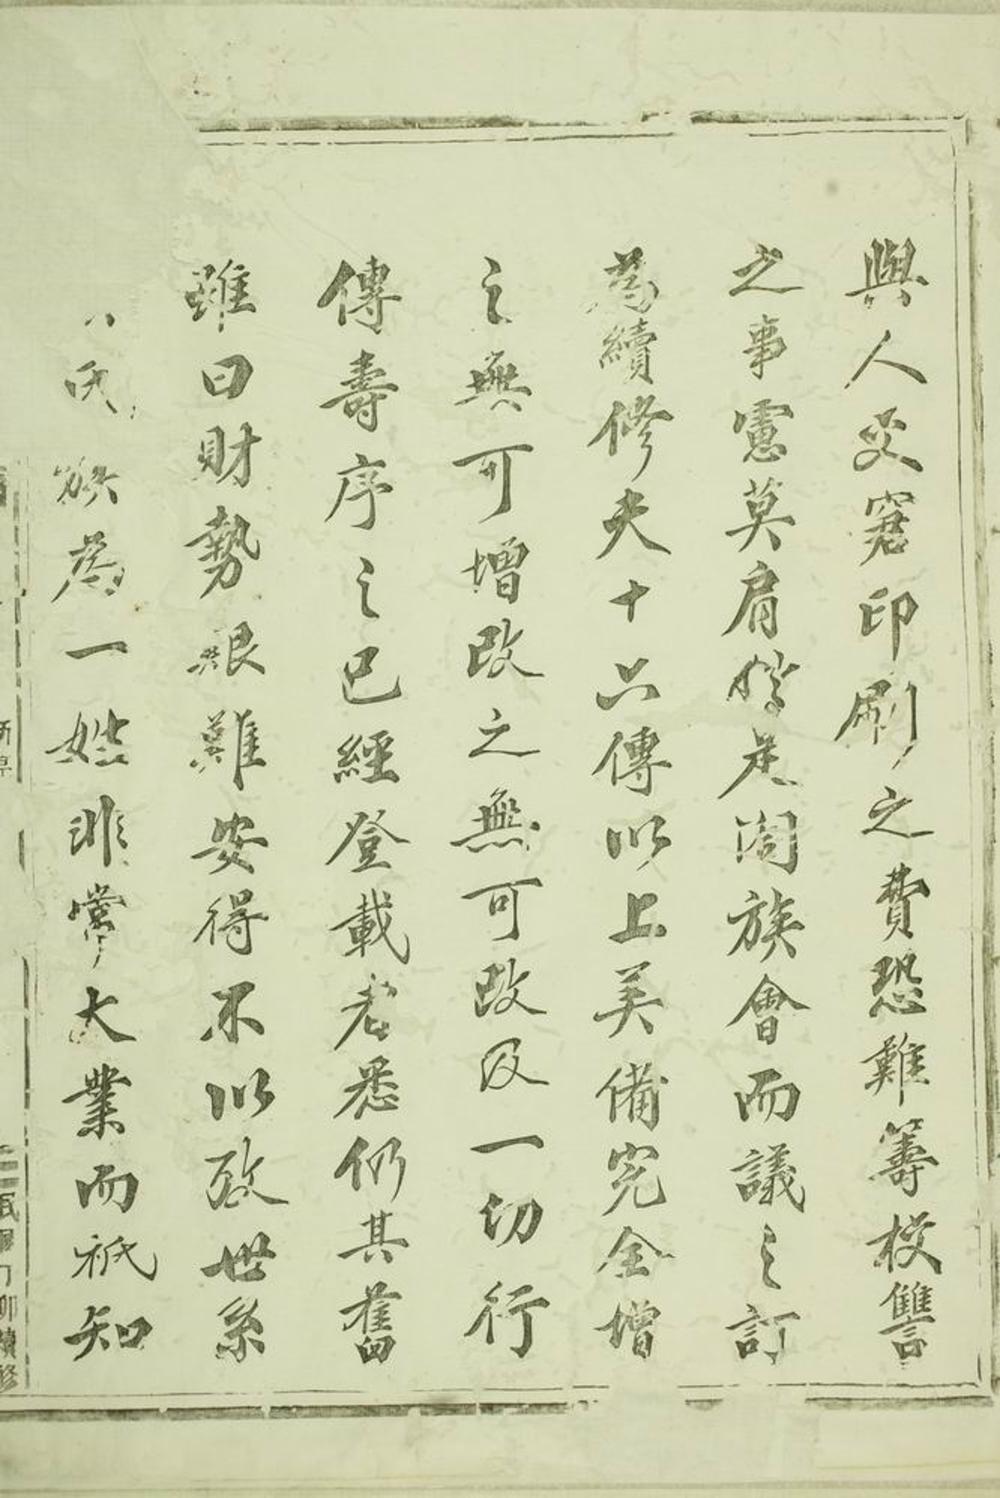 與人交窘印刷之費恐難籌校讐
之事憲莫肩惟是闔族會而議之訂
為續修夫十六傳以上美備完全增
之無可增改之無可改及一切行
傳壽序之已經登載者悉仍其舊
雖曰財勢艱難安得不以攷世系
氏族為一姓非常大業而祇知